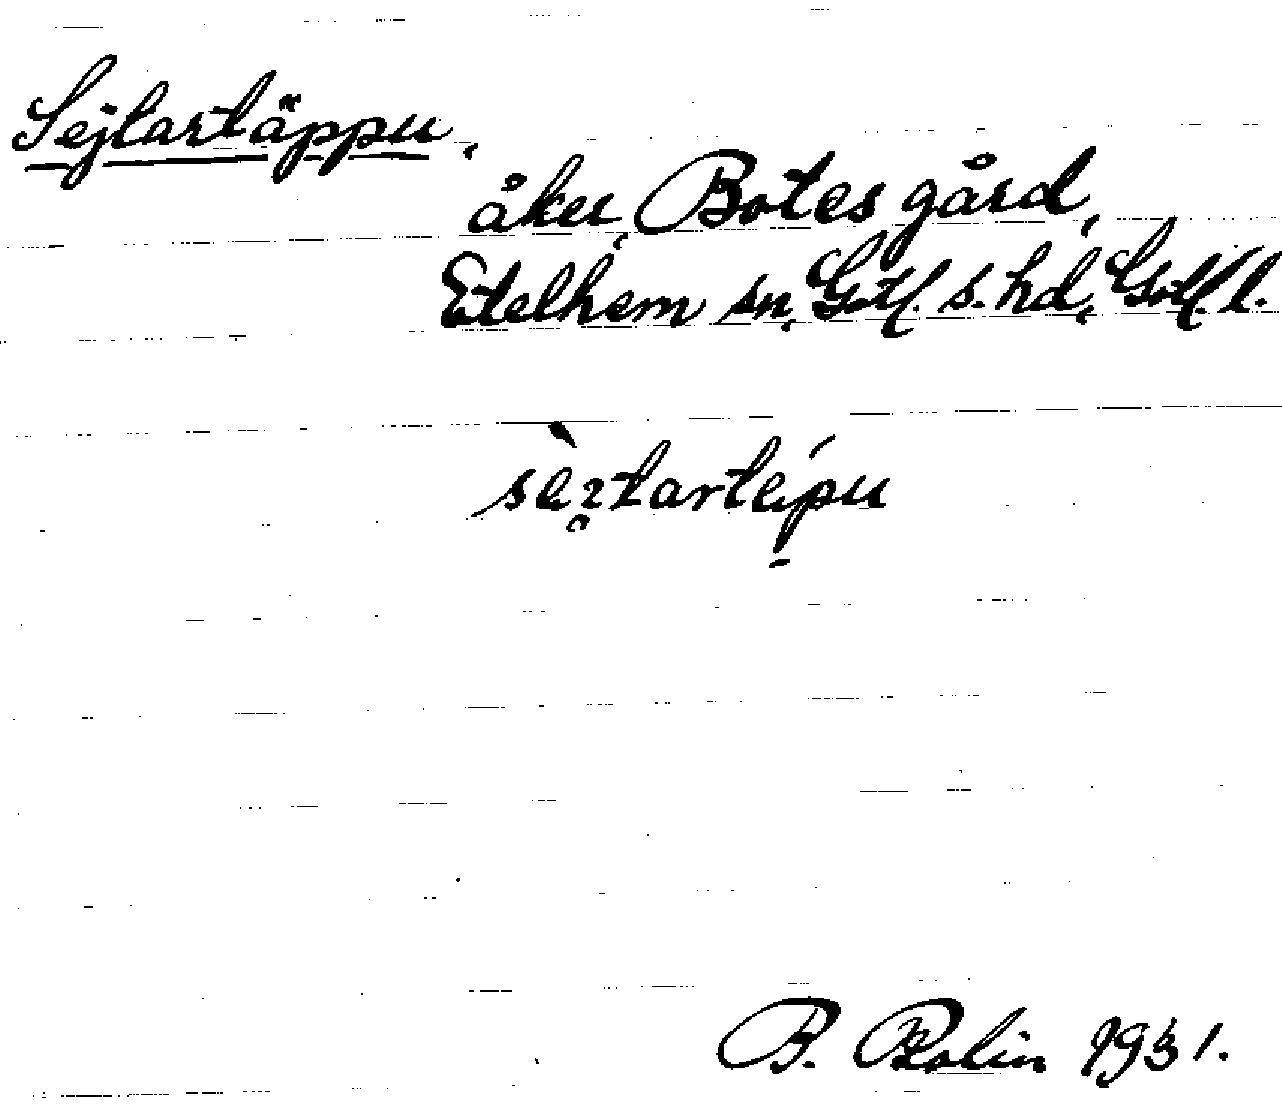 Sejlartäppu,
åker, Botes gård,
Etelhem sn, Gotl. s. hd, Gotl. l.
B. Rolin 1931.